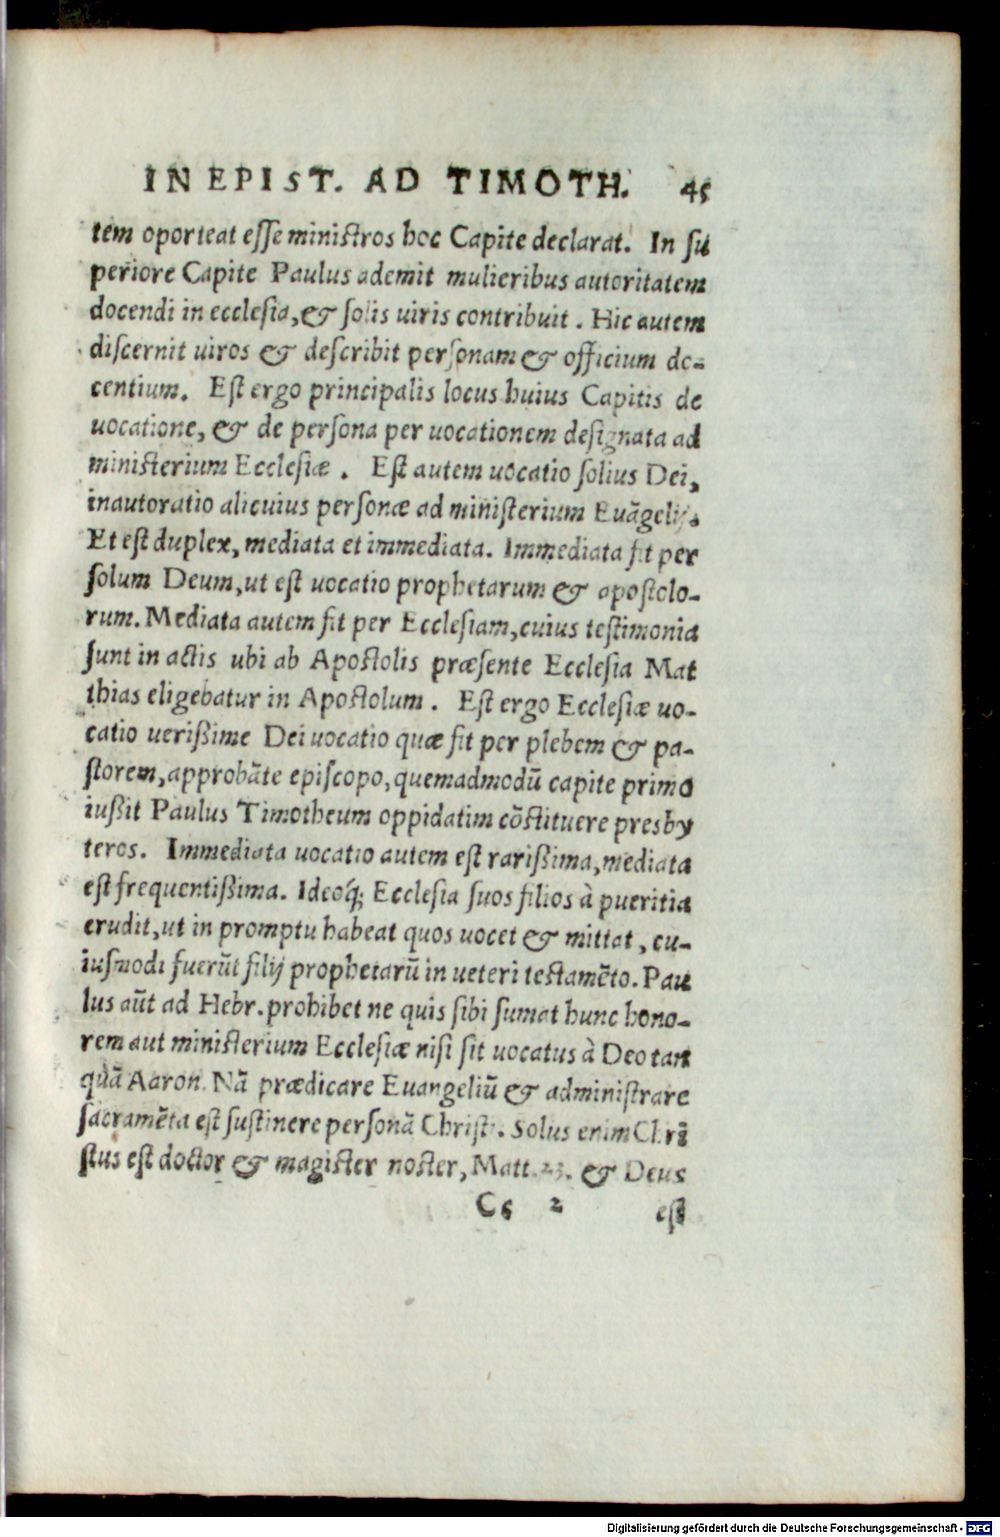 IN EPIST. AD TIMOTH. 45
tem oporteat esse ministros hoc Capite declarat. In su
periore Capite Paulus ademit mulieribus autoritatem
docendi in ecclesia, & solis uiris contribuit. Hic autem
discernit uiros & describit personam & officium do-
centium. Est ergo principalis locus huius Capitis de
uocatione, & de persona per uocationem designata ad
ministerium Ecclesiæ. Est autem uocatio solius Dei,
inautoratio alicuius personæ ad ministerium Euãgelij.
Et est duplex, mediata et immediata. Immediata fit per
solum Deum, ut est uocatio prophetarum & apostolo-
rum. Mediata autem fit per Ecclesiam, cuius testimonia
sunt in actis ubi ab Apostolis præsente Ecclesia Mat
thias eligebatur in Apostolum. Est ergo Ecclesiæ uo-
catio uerißime Dei uocatio quæ fit per plebem & pa-
storem, approbãte episcopo, quemadmodũ capite primo
iußit Paulus Timotheum oppidatim cõstituere presby
teros. Immediata uocatio autem est rarißima, mediata
est frequentißima. Ideoq́; Ecclesia suos filios à pueritia
erudit, ut in promptu habeat quos uocet & mittat, cu-
iusmodi fuerũt filij prophetarũ in ueteri testamẽto. Pau
lus aũt ad Hebr. prohibet ne quis sibi sumat hunc hono-
rem aut ministerium Ecclesiæ nisi sit uocatus à Deo tan
quã Aaron. Nã prædicare Euangeliũ & administrare
sacramẽta est sustinere personã Christi. Solus enim Chri
stus est doctor & magister noster, Matt. 23. & Deus
C5 2 est
Digitalisierung gefördert durch die Deutsche Forschungsgemeinschaft - DFG